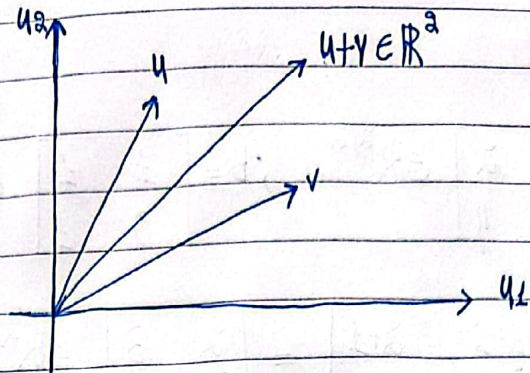 u2
u
u+v ∈ ℝ²
v
u1